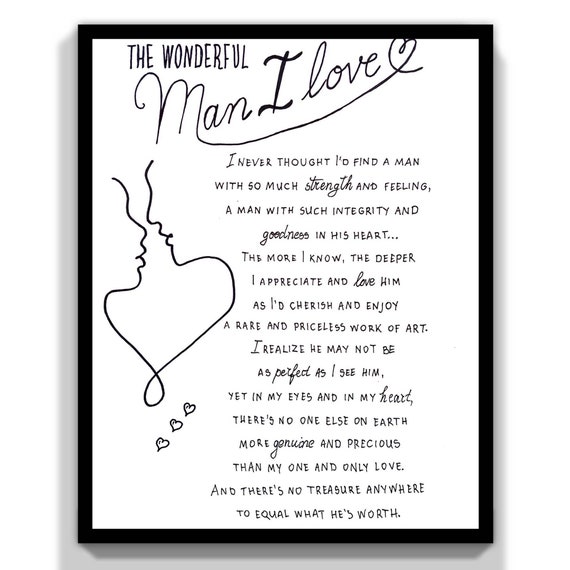 THE WONDERFUL
Man I love
I NEVER THOUGHT I'D FIND A MAN
WITH SO MUCH strength AND FEELING,
A MAN WITH SUCH INTEGRITY AND
goodness IN HIS HEART...
THE MORE I KNOW, THE DEEPER
I APPRECIATE AND love HIM
AS I'D CHERISH AND ENJOY
A RARE AND PRICELESS WORK OF ART.
I REALIZE HE MAY NOT BE
AS perfect AS I SEE HIM,
YET IN MY EYES AND IN MY heart,
THERE'S NO ONE ELSE ON EARTH
MORE genuine AND PRECIOUS
THAN MY ONE AND ONLY LOVE.
AND THERE'S NO TREASURE ANYWHERE
TO EQUAL WHAT HE'S WORTH.